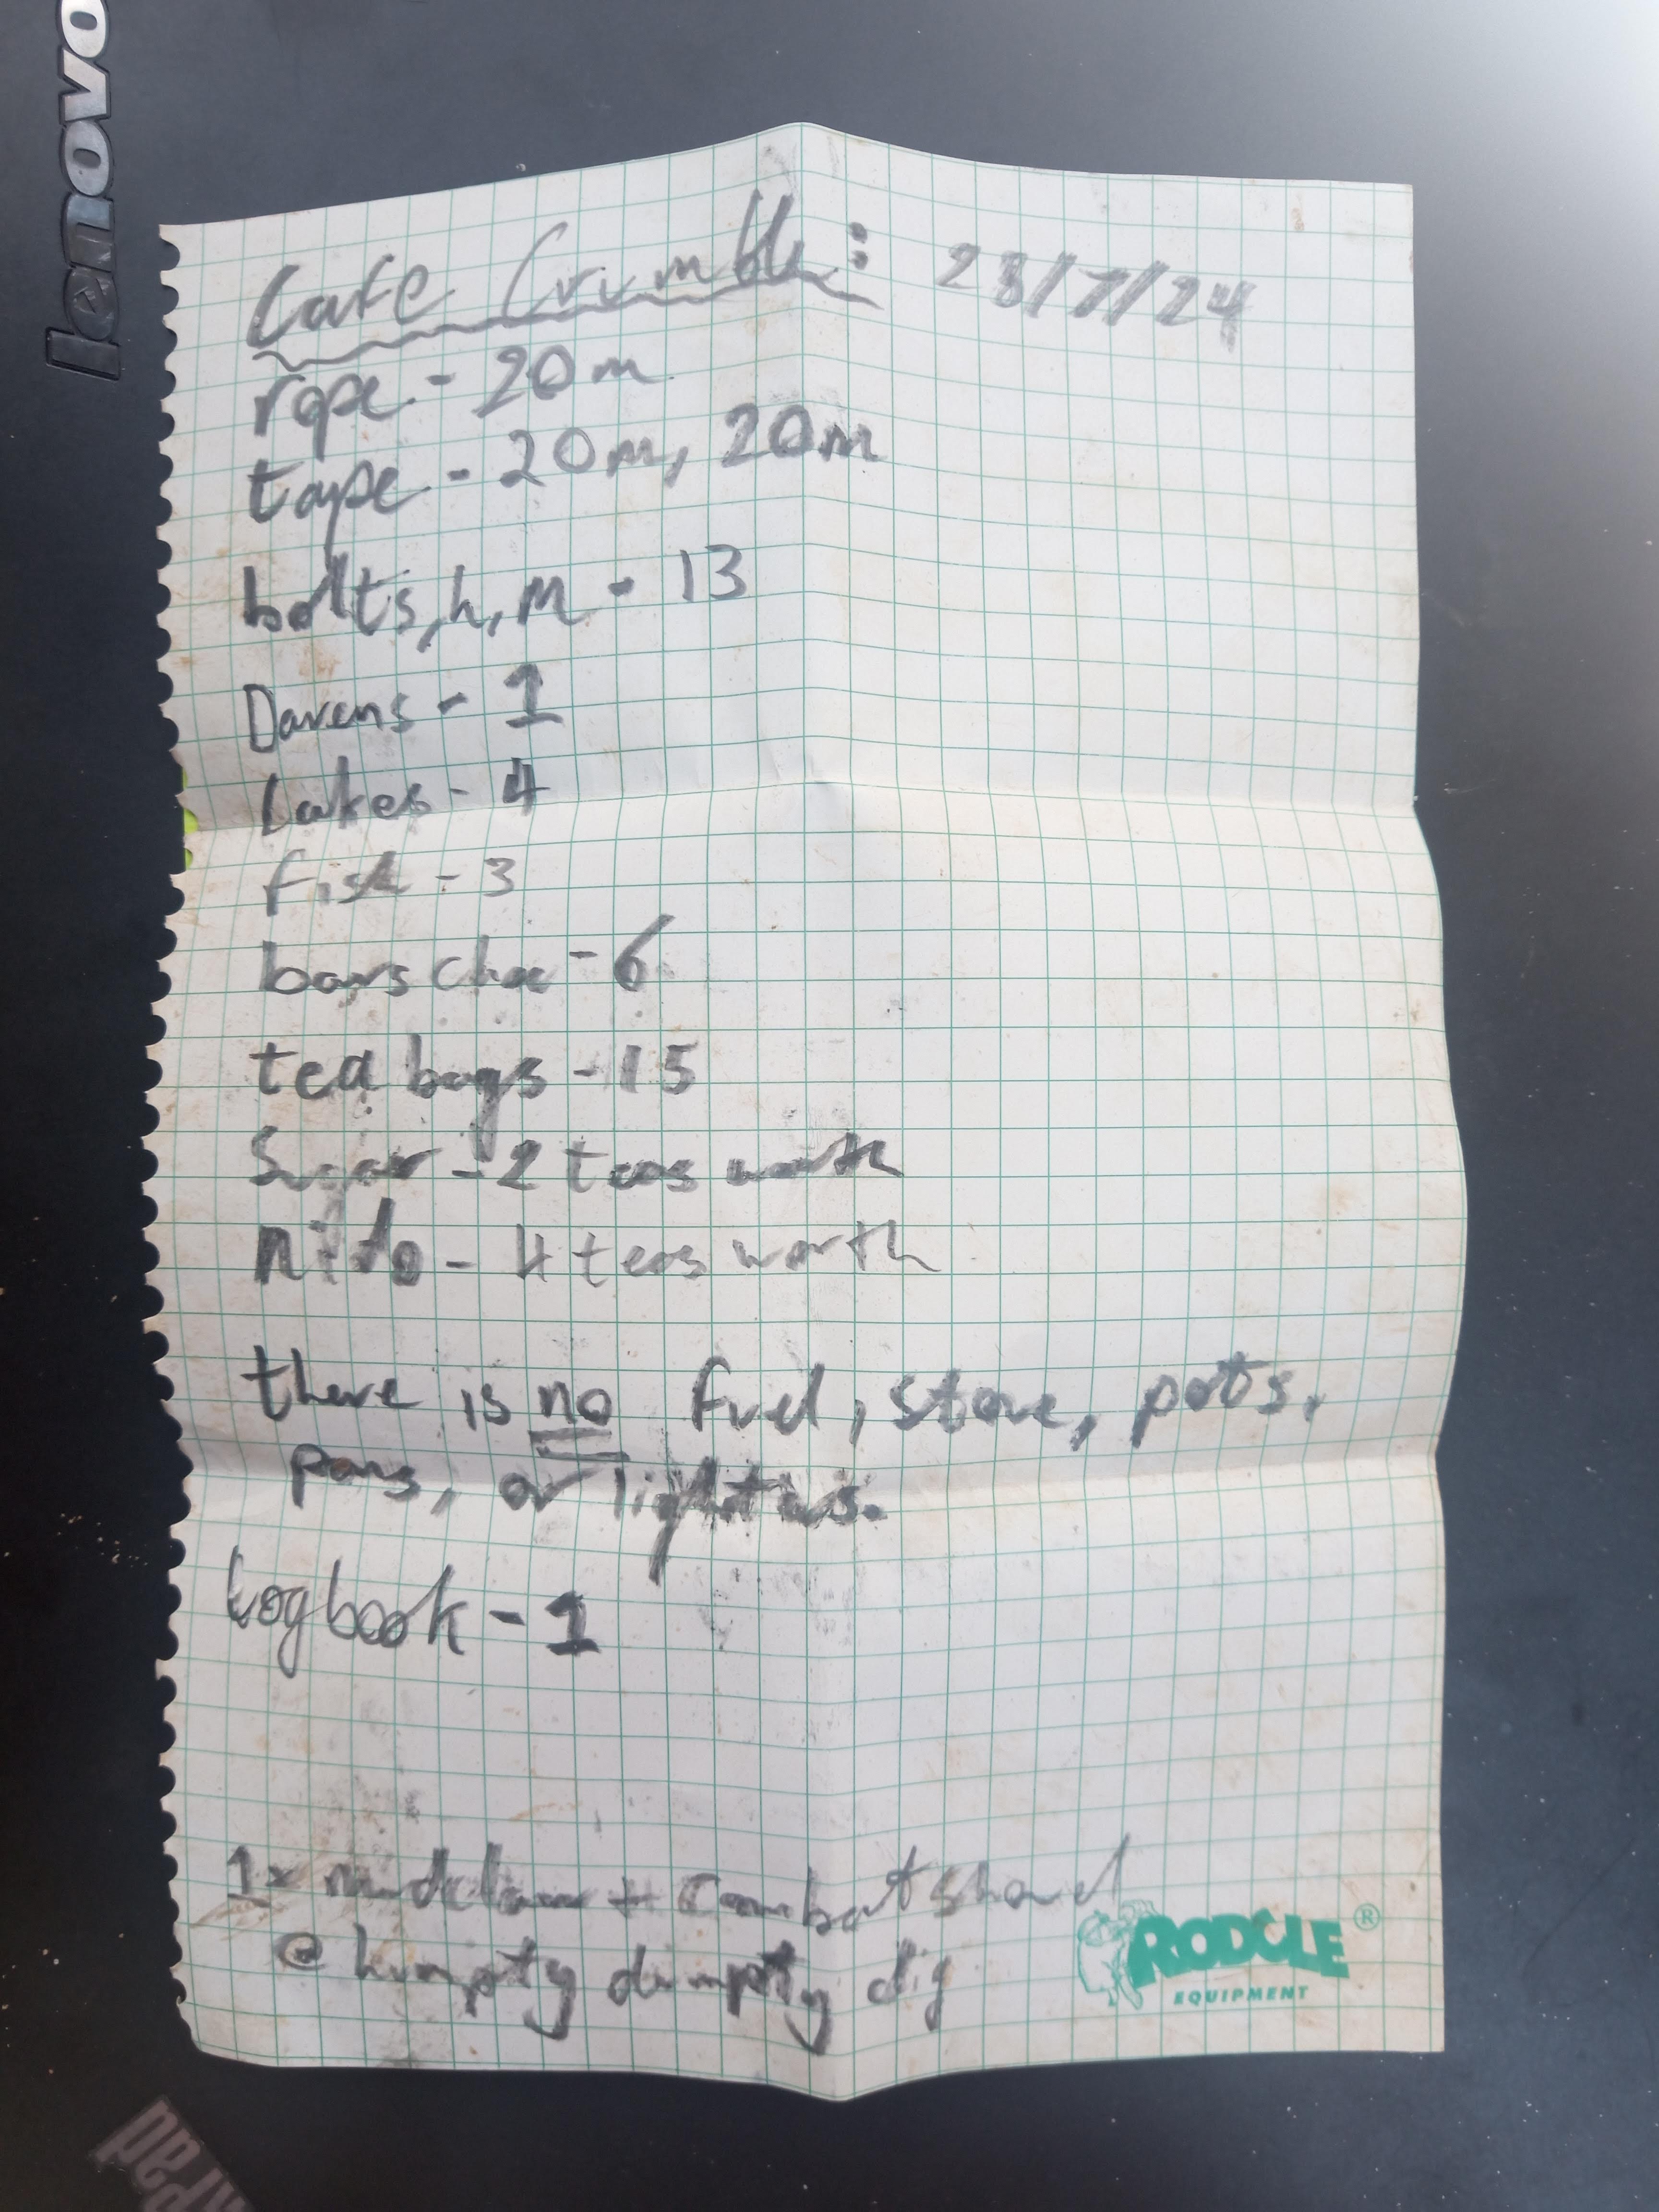 lenovo
Cafe Crumble: 23/7/24
rope - 20m
tape - 20m, 20m
bolts, h, m - 13
Darens - 1
Lakes - 4
fish - 3
bars choc - 6
tea bags - 15
Sugar - 2 teas worth
nido - 4 teas worth
there is no fuel, stove, pots,
pans, or lighters.
Logbook - 1
1x mudclaw + Combat shovel
@ humpty dumpty dig
RODCLE®
EQUIPMENT